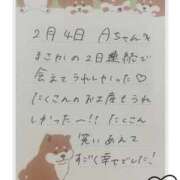 2月4日 Aちゃん♡
まさかの2日連続で
会えてうれしかった♡
たくさんのお土産もうれ
しかったー!! たくさん
笑いあえて
すごく幸せでした!